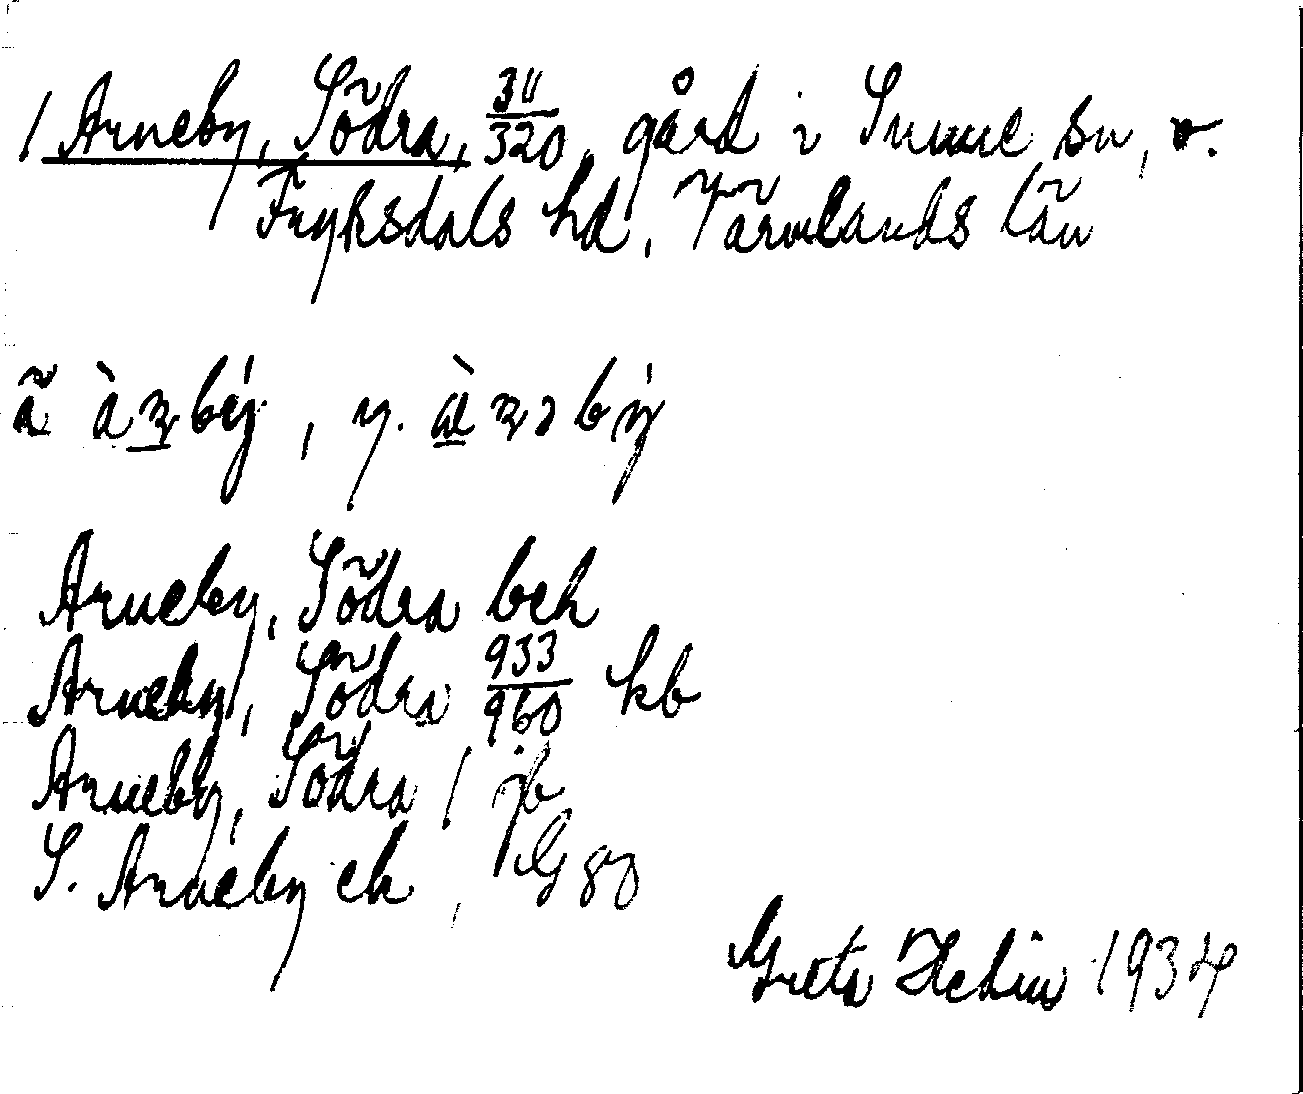 / Arneby, Södra, 311/320, gård i Sunne sn, ö.
Fryksdals hd, Värmlands län
ã àɳbý, y. àɳəbý
Arneby, Södra beh
Arneby, Södra 933/960 kb
Arneby, Södra / jb
S. Arneby ek,
Greta Hedin 1934